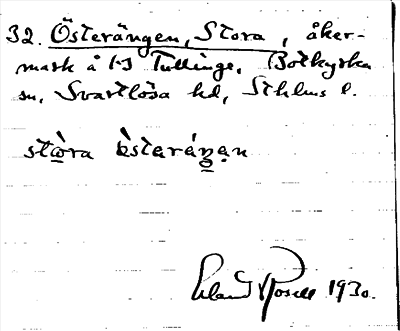 32. Österängen, Stora, åker-
mark å 1-3 Tullinge, Botkyrka
sn, Svartlösa hd, Sthlms l.
stὼra ὸ̀staráŋan
Erland Rosell 1930.